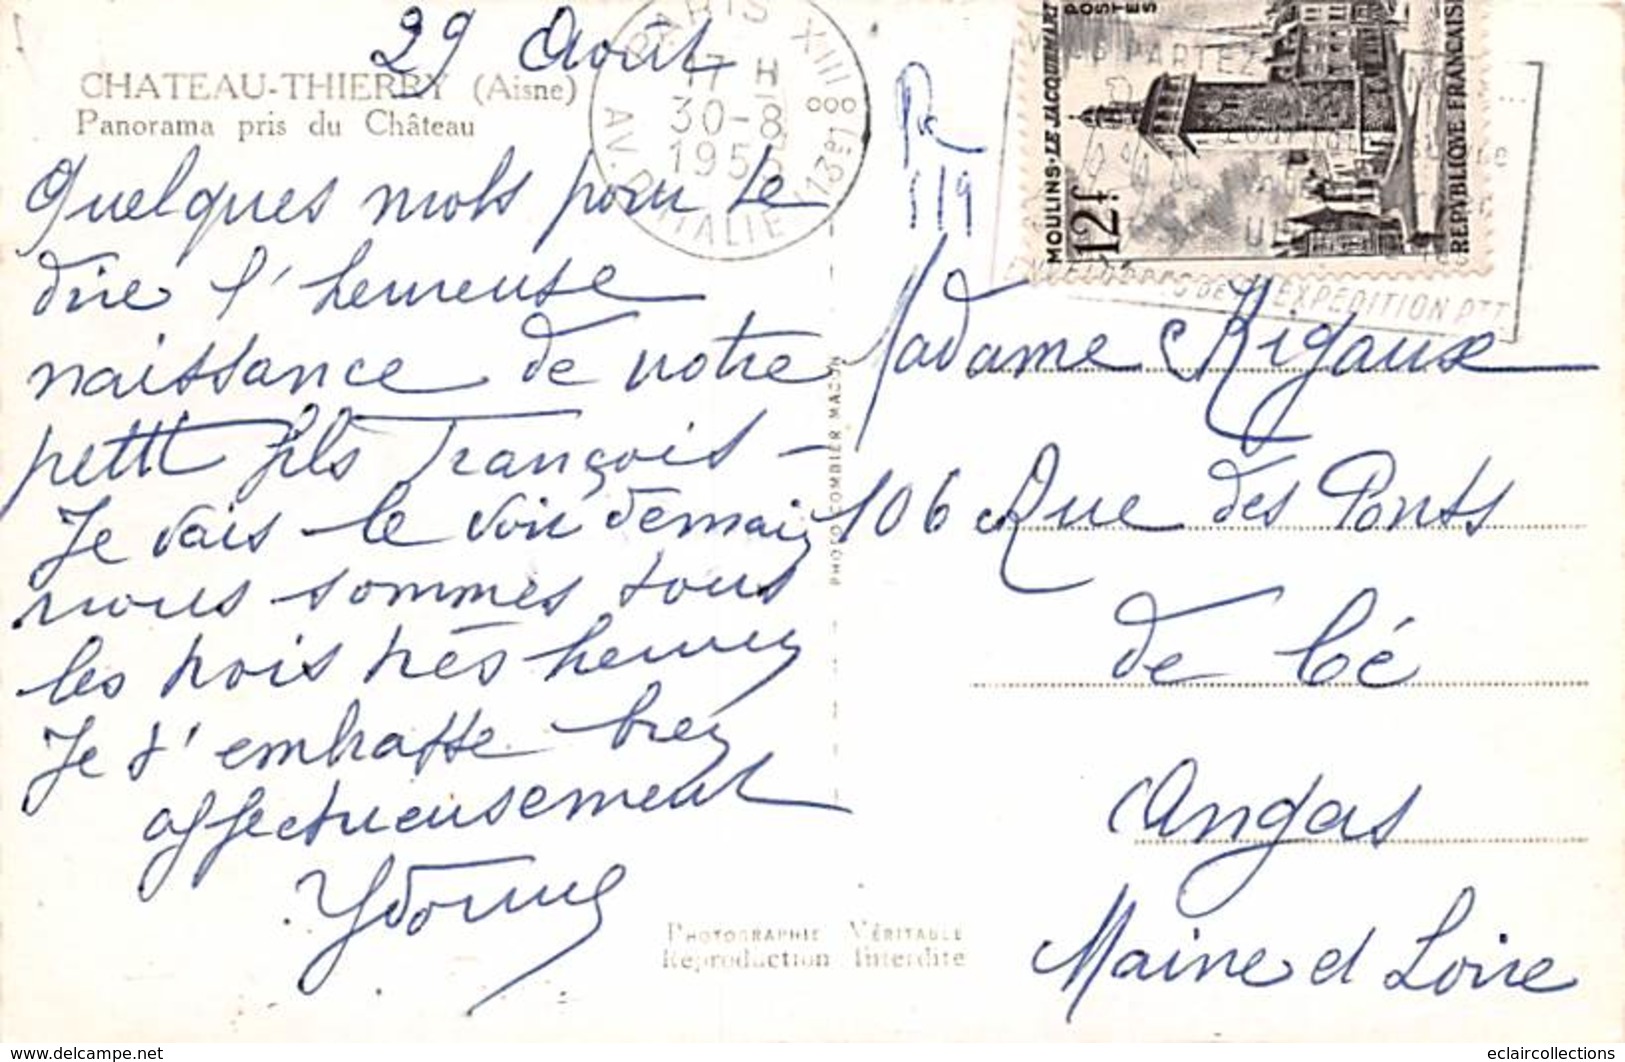 29 Août
CHATEAU-THIERRY (Aisne)
Panorama pris du Château
Quelques mots pour te
dire l'heureuse
naissance de notre
petit fils François -
Je vais le voir demain
nous sommes tous
les trois très heureux
Je t'embrasse bien
affectueusement
Yvonne
PARIS XIII
17 H
30-8
1955
AV. D'ITALIE (13e)
R
519
POSTES
MOULINS-LE JACQUEMART
12f
REPVBLIQVE FRANCAISE
PARTEZ
EXPEDITION PTT
Madame Rigaux
106 Rue des Ponts
de Cé
Angers
Maine et Loire
PHOTO COMBIER MACON
PHOTOGRAPHIE VÉRITABLE
Reproduction Interdite
www.delcampe.net
eclaircollections